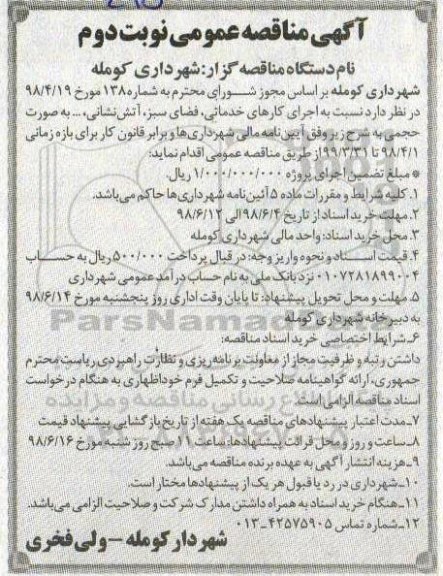 آگهی مناقصه عمومی نوبت دوم
نام دستگاه مناقصه گزار: شهرداری کومله
شهرداری کومله بر اساس مجوز شورای محترم به شماره ۱۳۸ مورخ ۹۸/۴/۱۹
در نظر دارد نسبت به اجرای کارهای خدماتی، فضای سبز، آتش‌نشانی، ... به صورت
حجمی به شرح زیر وفق آیین نامه مالی شهرداری‌ها و برابر قانون کار برای بازه زمانی
۹۸/۴/۱ تا ۹۹/۳/۳۱ از طریق مناقصه عمومی اقدام نماید:
* مبلغ تضمین اجرای پروژه ۱/۰۰۰/۰۰۰/۰۰۰ ریال.
۱. کلیه شرایط و مقررات ماده ۵ آئین نامه شهرداری‌ها حاکم می‌باشد.
۲. مهلت خرید اسناد از تاریخ ۹۸/۶/۴ الی ۹۸/۶/۱۲
۳. محل خرید اسناد: واحد مالی شهرداری کومله
۴. قیمت اسناد و نحوه واریز وجه: در قبال پرداخت ۵۰۰/۰۰۰ ریال به حساب
۰۱۰۷۲۸۱۸۹۹۰۰۴ نزد بانک ملی به نام حساب درآمد عمومی شهرداری
۵. مهلت و محل تحویل پیشنهاد: تا پایان وقت اداری روز پنجشنبه مورخ ۹۸/۶/۱۴
به دبیرخانه شهرداری کومله
ParsNamadData
۶- شرایط اختصاصی خرید اسناد مناقصه:
داشتن رتبه و ظرفیت مجاز از معاونت برنامه‌ریزی و نظارت راهبردی ریاست محترم
جمهوری، ارائه گواهینامه صلاحیت و تکمیل فرم خوداظهاری به هنگام درخواست
اسناد مناقصه الزامی است.
۷- مدت اعتبار پیشنهادهای مناقصه یک هفته از تاریخ بازگشایی پیشنهاد قیمت
۸- ساعت و روز و محل قرائت پیشنهادها: ساعت ۱۱ صبح روز شنبه مورخ ۹۸/۶/۱۶
۹- هزینه انتشار آگهی به عهده برنده مناقصه می‌باشد.
۱۰- شهرداری در رد یا قبول هر یک از پیشنهادها مختار است.
۱۱- هنگام خرید اسناد به همراه داشتن مدارک شرکت و صلاحیت الزامی می‌باشد.
۱۲- شماره تماس ۴۲۵۷۵۹۰۵-۰۱۳
شهردار کومله - ولی فخری